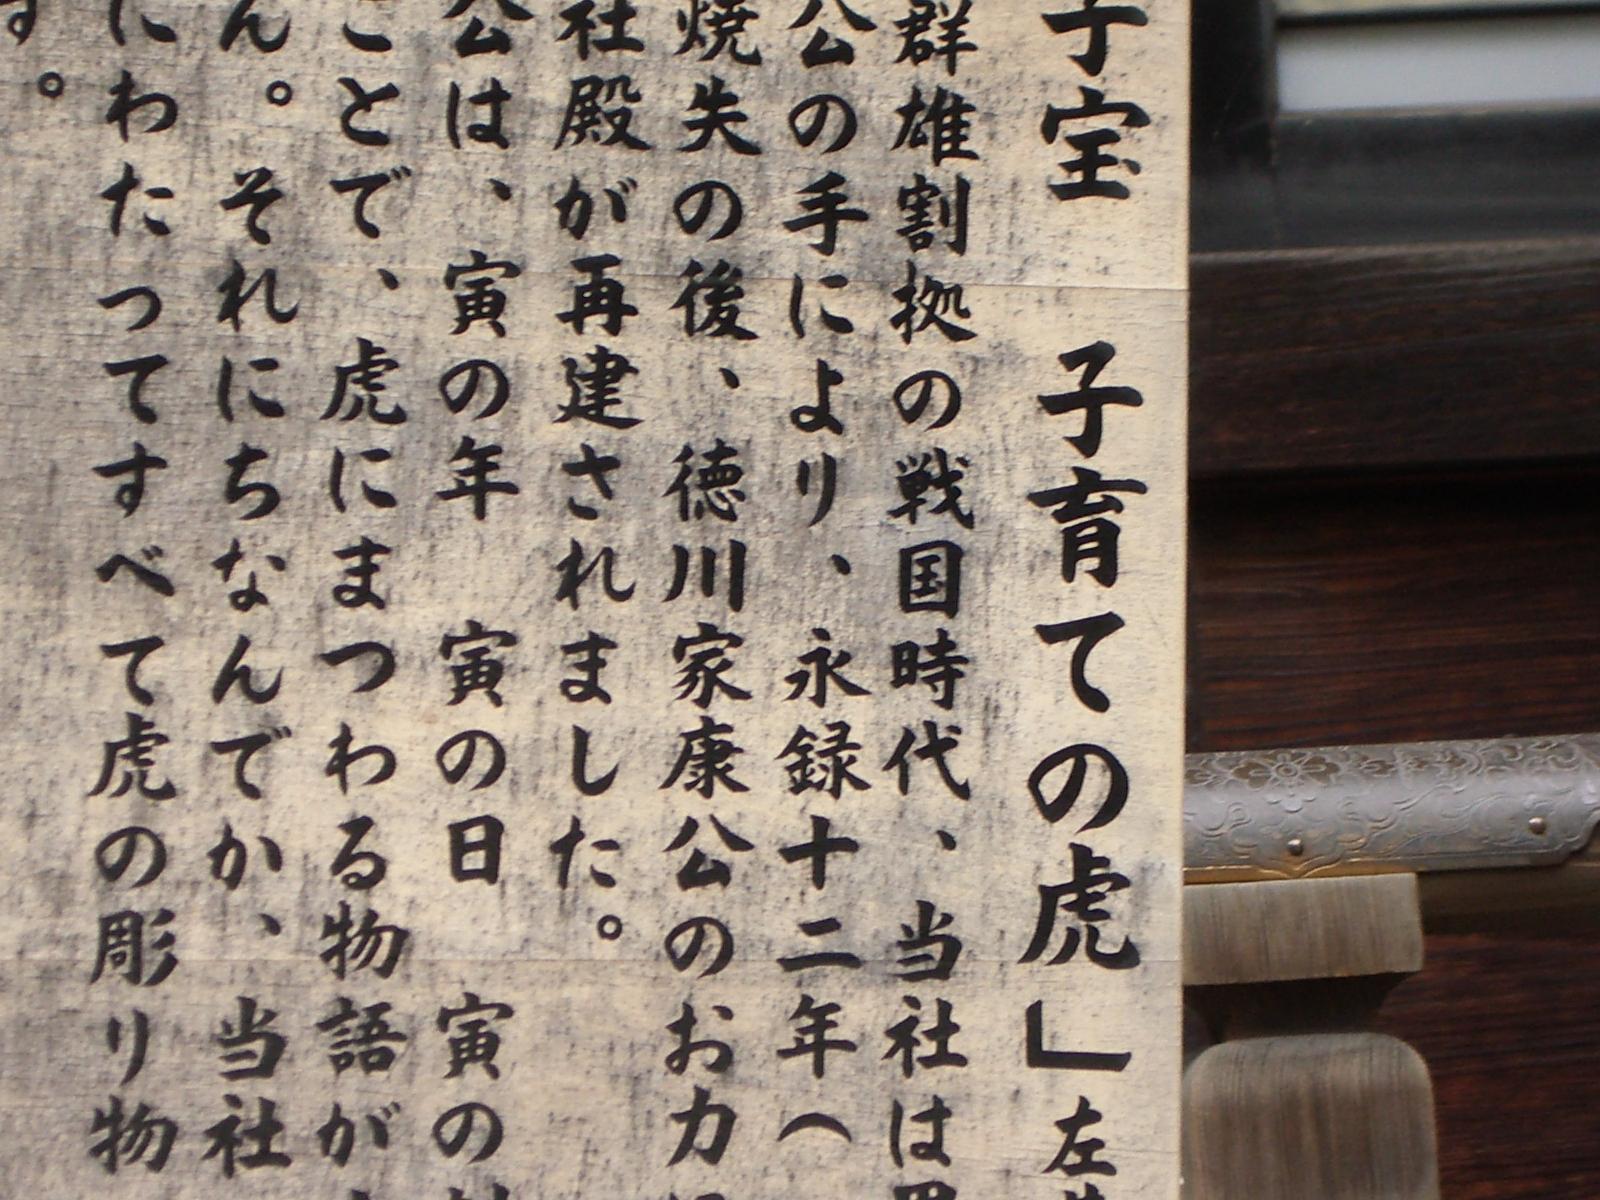 子宝　子育ての虎」左
群雄割拠の戦国時代、当社は
公の手により、永録十二年（
焼失の後、徳川家康公のお力
社殿が再建されました。
公は、寅の年　寅の日　寅の
ことで、虎にまつわる物語が
ん。それにちなんでか、当社
にわたってすべて虎の彫り物
す。